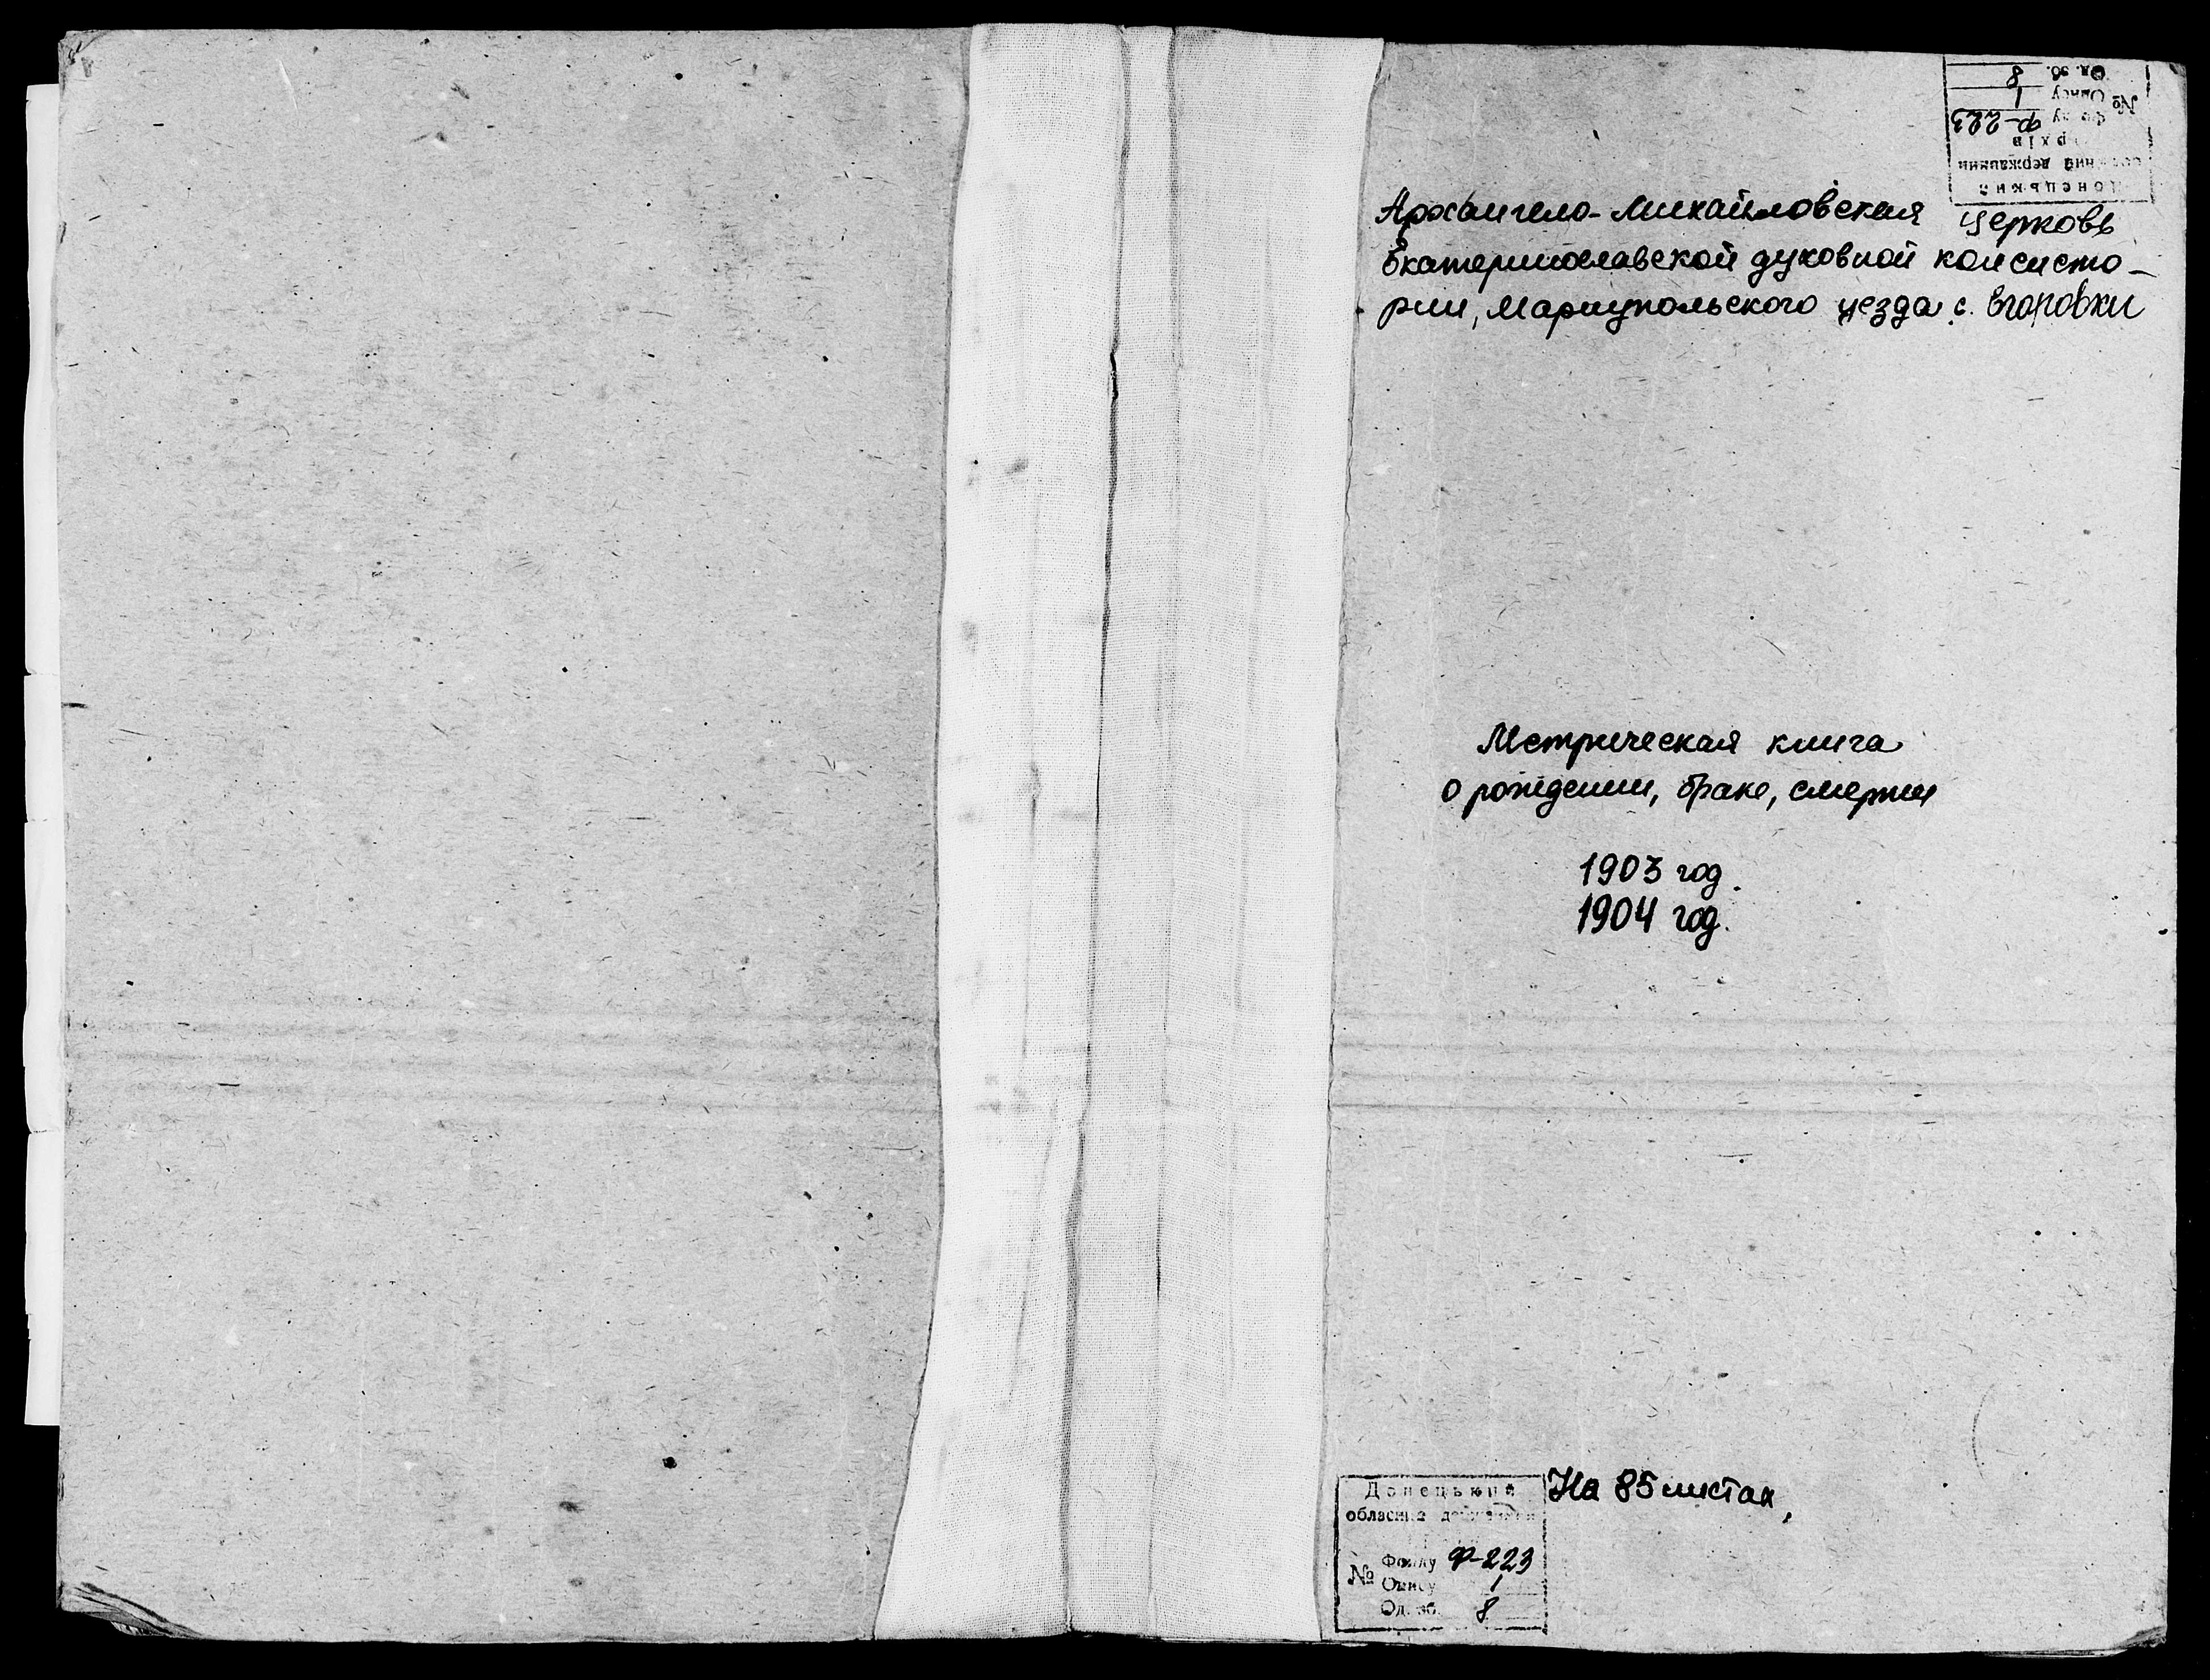 Донецький
державний
архів
№ Фонду Ф-223
Опису 1
Од. зб. 8
Архангело-Михайловская церковь
Екатеринославской духовной консисто-
рии, Мариупольского уезда с. Егоровки
Метрическая книга
о рождении, браке, смерти
1903 год.
1904 год.
На 85 листах,
Донецький
обласний
№ Фонду Ф-223
Опису 1
Од. зб. 8